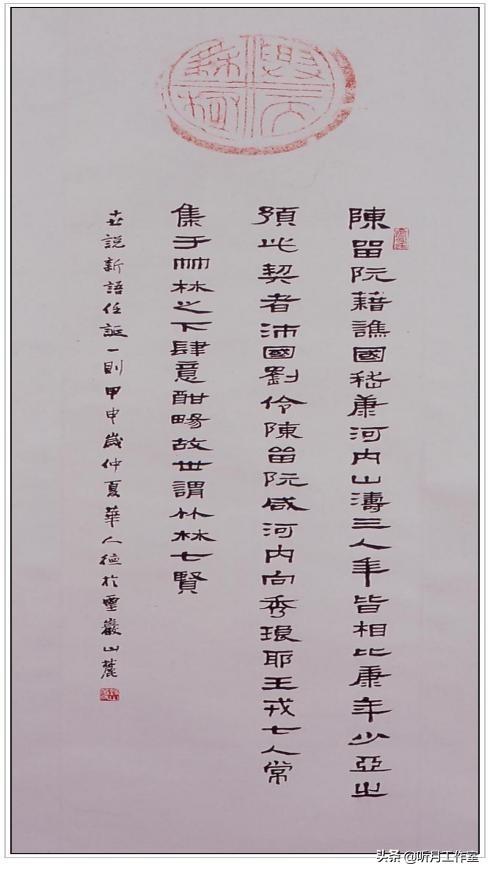 陳畱阮藉譙國嵇康河内山濤三人年皆相比康年少亞之
預此契者沛國劉伶陳畱阮咸河内向秀琅耶王戎七人常
集于竹林之下肆意酣暢故世謂竹林七賢
世説新語任誕一則甲申歲仲夏華人德於靈巖山麓
头条 @听月工作室